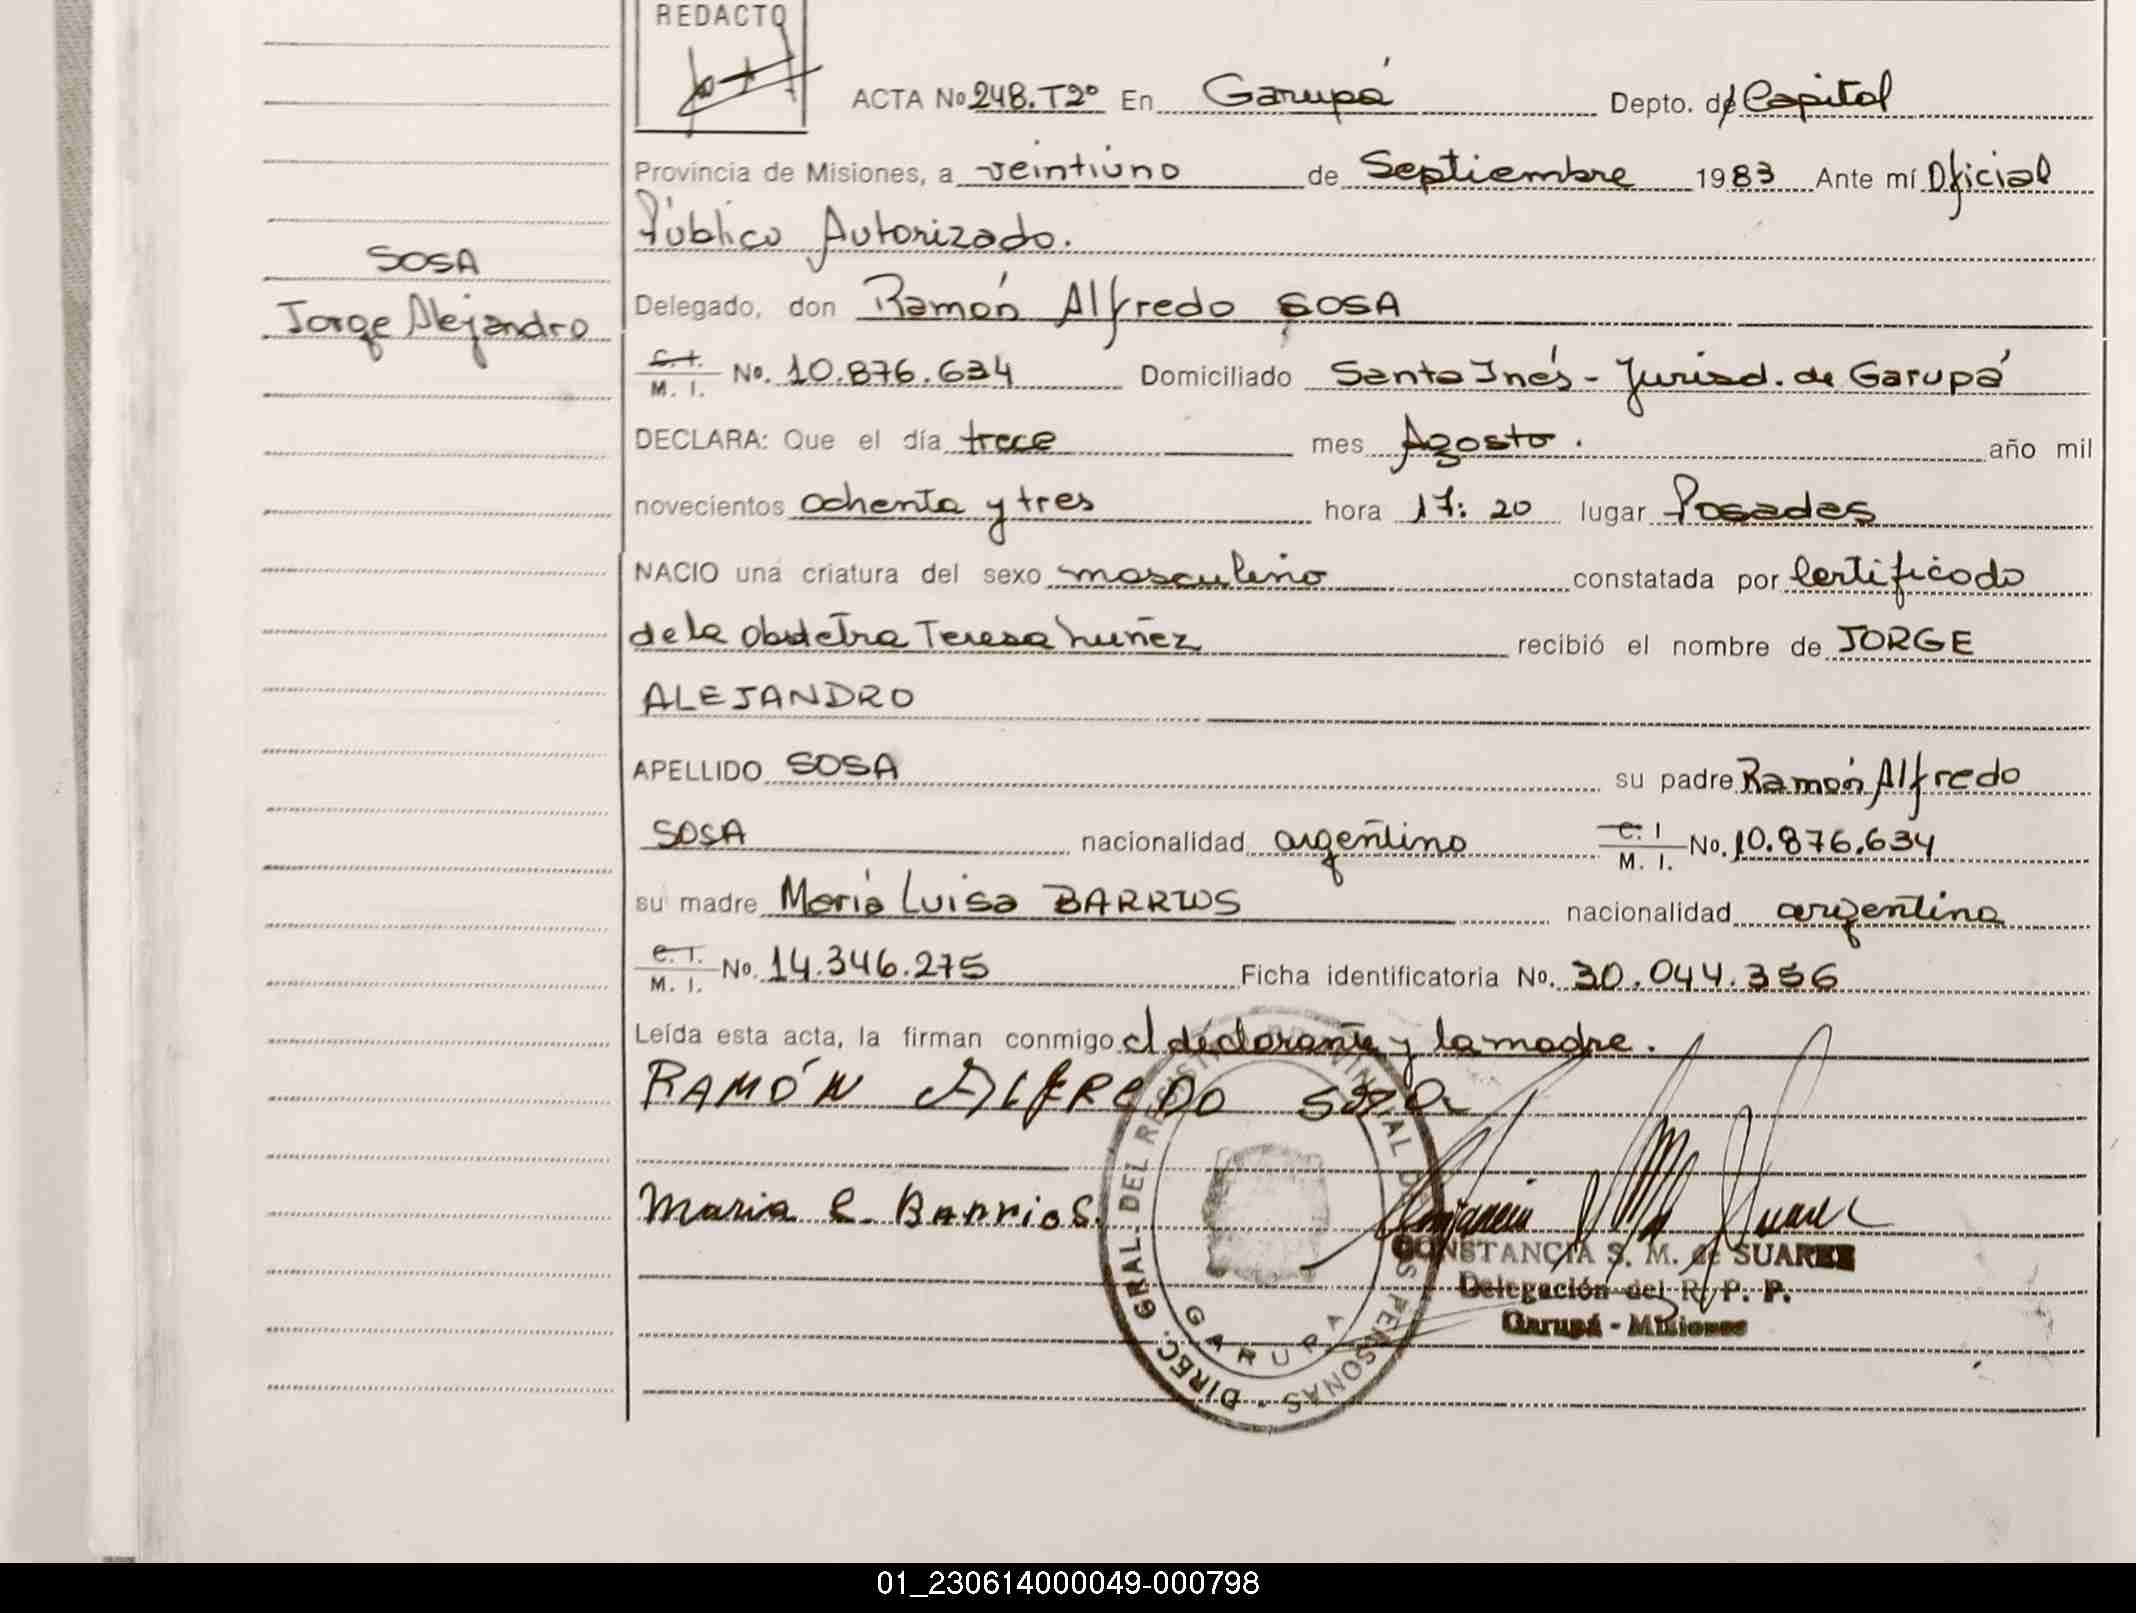 REDACTO
ACTA No 248. T2º En Garupá Depto. de Capital
Provincia de Misiones, a veintiuno de Septiembre 1983 Ante mí Oficial
Público Autorizado.
SOSA
Jorge Alejandro
Delegado, don Ramón Alfredo SOSA
C. I. M. I. No. 10.876.634 Domiciliado Santa Inés - Jurisd. de Garupá
DECLARA: Que el día trece mes Agosto. año mil
novecientos ochenta y tres hora 17:20 lugar Posadas
NACIO una criatura del sexo masculino constatada por certificado
de la obstetra Teresa Nuñez recibió el nombre de JORGE
ALEJANDRO
APELLIDO SOSA su padre Ramón Alfredo
SOSA nacionalidad argentino C. I M. I. No. 10.876.634
su madre María Luisa BARRIOS nacionalidad argentina
C. I. M. I. No. 14.346.275 Ficha identificatoria No. 30.044.356
Leída esta acta, la firman conmigo el declarante y la madre.
RAMÓN ALFREDO SOSA
Maria L. Barrios.
CONSTANCIA S. M. de SUAREZ
Delegación del R. P. P.
Garupá - Misiones
DIREC. GRAL. DEL REGIST. PROVINCIAL DE LAS PERSONAS
GARUPA
01_230614000049-000798